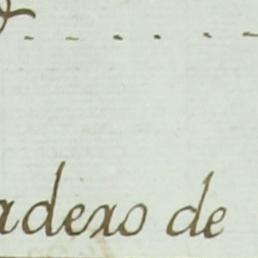 adexo de